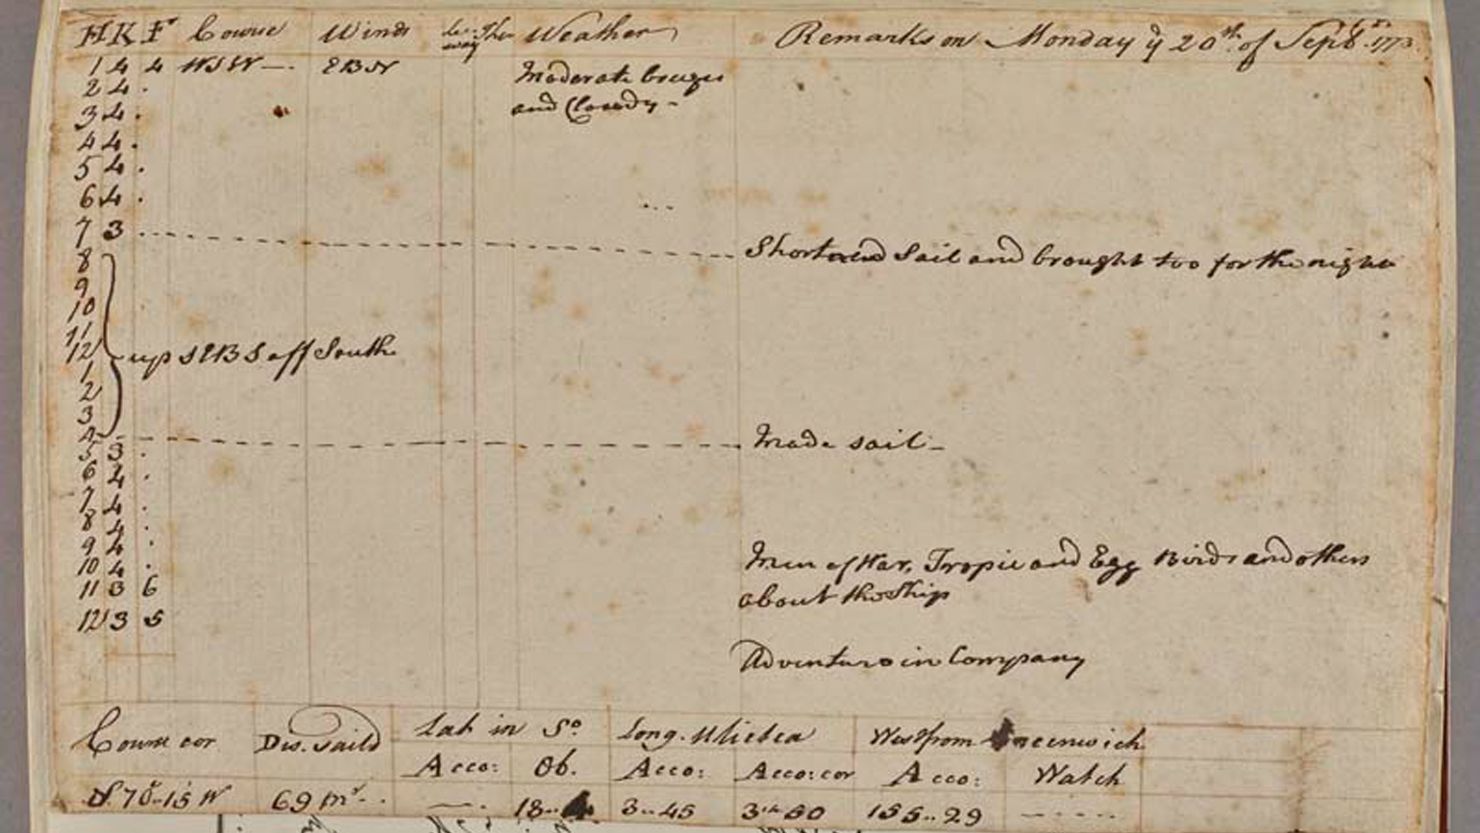 H K F Course Winds Weather Remarks on Monday ÿ 20th. of Sepbr. 1773
1 4 4 WSW -. EBN Moderate breezes
2 4 . and Cloudy -
3 4 .
4 4 .
5 4 .
6 4 .
7 3 Shortened Sail and brought too for the night
8
9
10
11
12 up SEBS off South
1
2
3
4 Made sail -
5 3 .
6 4 .
7 4 .
8 4 .
9 4 . Men of War, Tropic and Egg Birds and others
10 4 . about the Ship
11 3 6
12 3 5
Adventure in Company
Course cor Dis. Saild Lat in So. Long. Ulietea West from Greenwich
Acco: Ob. Acco: Acco: cor Acco: Watch
S. 78-15 W 69 ms. 18.. 3.. 45 3.. 50 155.. 29